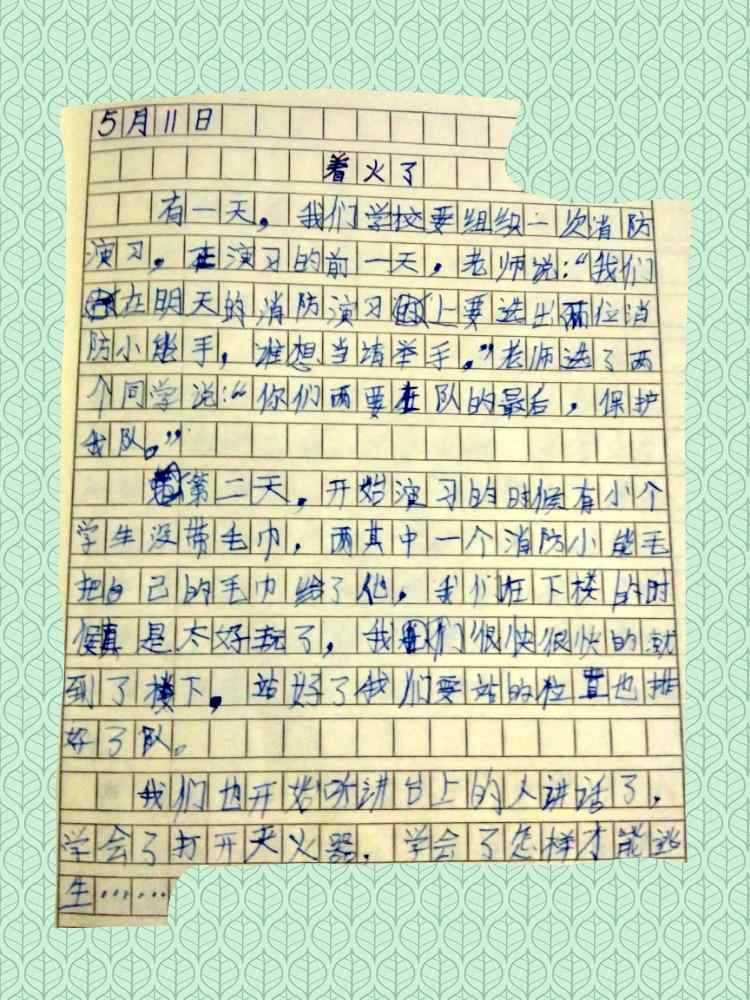 5月11日
着火了
有一天，我们学校要组织一次消防
演习，在演习的前一天，老师说：“我们
在明天的消防演习上要选出两位消
防小能手，谁想当请举手。”老师选了两
个同学说：“你们两要在队的最后，保护
我队。”
第二天，开始演习的时候有小个
学生没带毛巾，两其中一个消防小能毛
把自己的毛巾给了他。我们在下楼的时
候真是太好玩了，我们很快很快的就
到了楼下，站好了我们要站的位置也排
好了队。
我们也开始听讲台上的人讲话了，
学会了打开灭火器，学会了怎样才能逃
生……